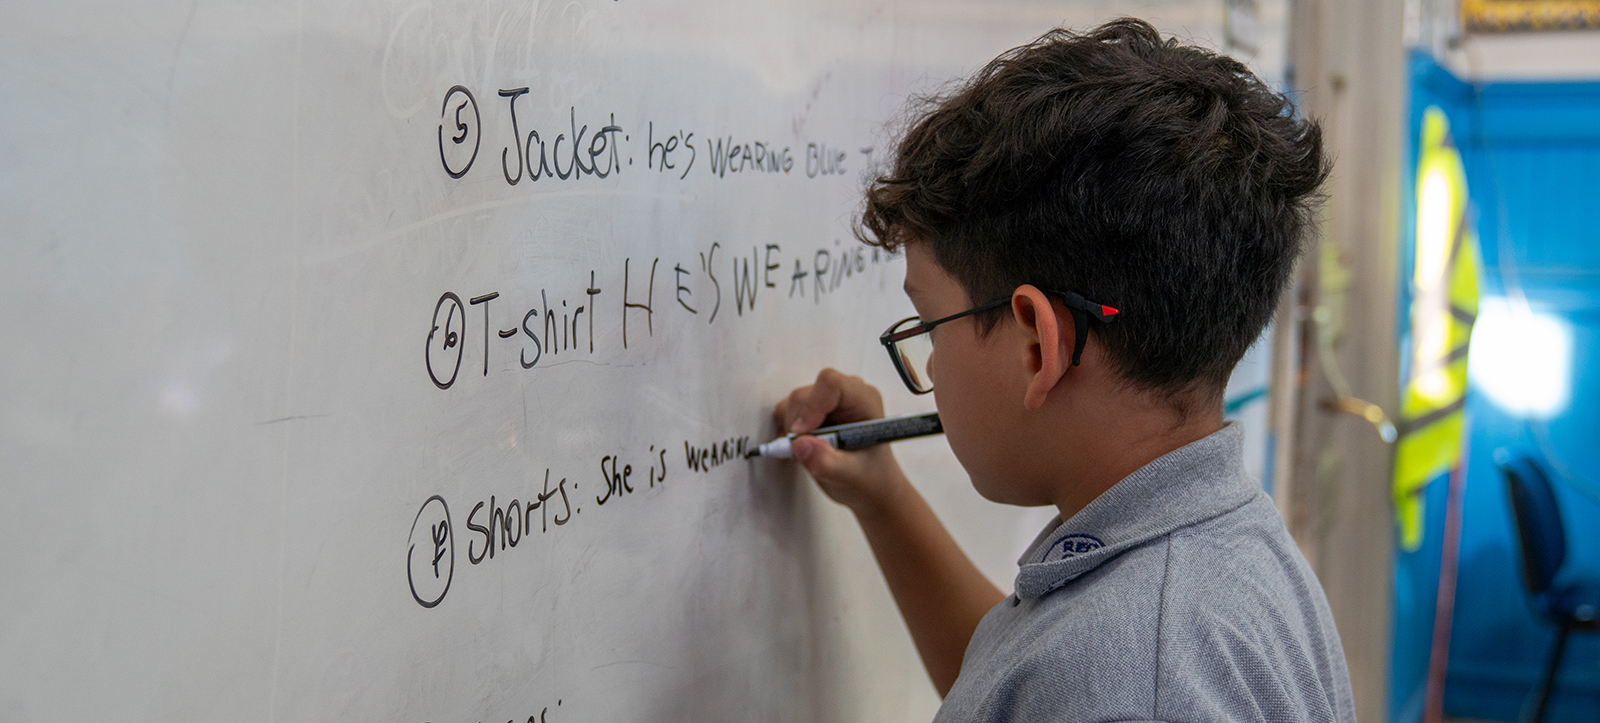 5 Jacket: he's WEARING BLUE
6 T-shirt HE'S WEARING
7 Shorts: She is WEARING